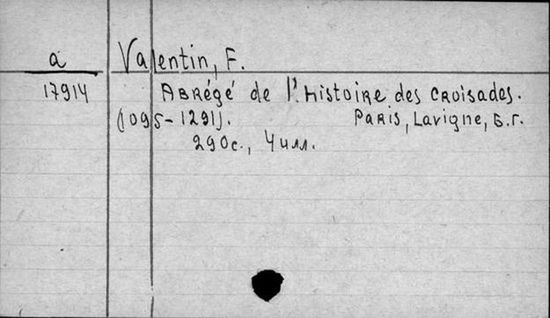 a Valentin, F.
17914 Abrégé de l'Histoire des Croisades.
(1095-1291). Paris, Lavigne, б.г.
290с., 4 илл.